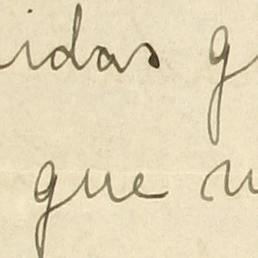 idas g
que u